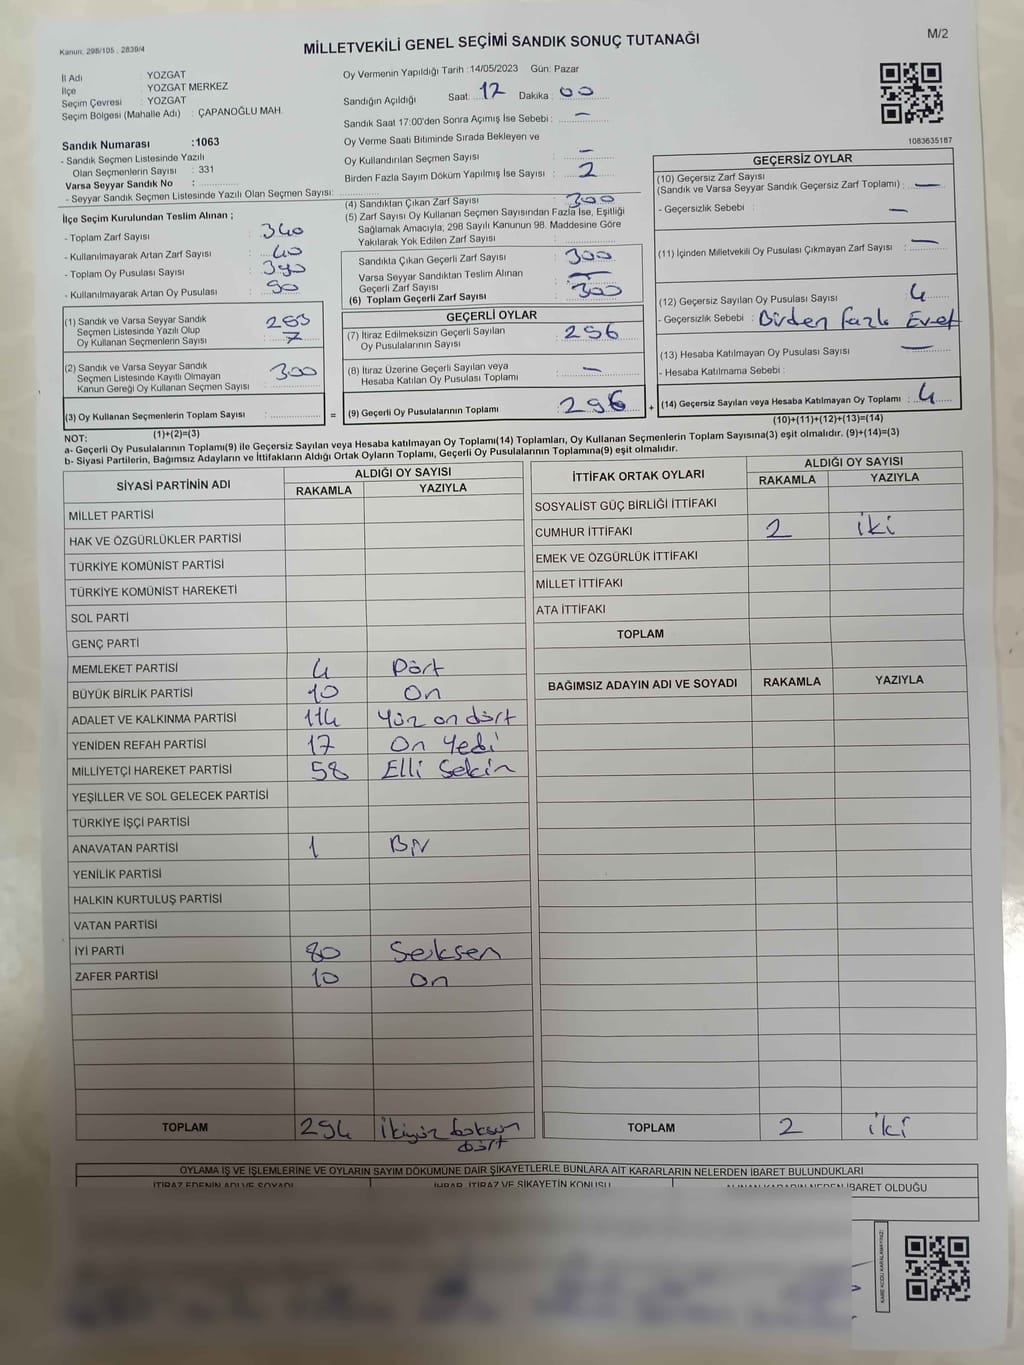 Kanun: 298/105 , 2839/4
MİLLETVEKİLİ GENEL SEÇİMİ SANDIK SONUÇ TUTANAĞI
M/2
İl Adı : YOZGAT
İlçe : YOZGAT MERKEZ
Seçim Çevresi : YOZGAT
Seçim Bölgesi (Mahalle Adı) : ÇAPANOĞLU MAH.
Sandık Numarası :1063
- Sandık Seçmen Listesinde Yazılı
Olan Seçmenlerin Sayısı : 331
Varsa Seyyar Sandık No :
- Seyyar Sandık Seçmen Listesinde Yazılı Olan Seçmen Sayısı:
Oy Vermenin Yapıldığı Tarih :14/05/2023 Gün: Pazar
Sandığın Açıldığı Saat 17 Dakika 00
Sandık Saat 17:00'den Sonra Açımış İse Sebebi : —
Oy Verme Saati Bitiminde Sırada Bekleyen ve
Oy Kullandırılan Seçmen Sayısı : —
Birden Fazla Sayım Döküm Yapılmış İse Sayısı : 2
1083635187
İlçe Seçim Kurulundan Teslim Alınan ;
- Toplam Zarf Sayısı : 340
- Kullanılmayarak Artan Zarf Sayısı : 40
- Toplam Oy Pusulası Sayısı : 390
- Kullanılmayarak Artan Oy Pusulası : 90
(1) Sandık ve Varsa Seyyar Sandık
Seçmen Listesinde Yazılı Olup
Oy Kullanan Seçmenlerin Sayısı 293
7
(2) Sandık ve Varsa Seyyar Sandık
Seçmen Listesinde Kayıtlı Olmayan
Kanun Gereği Oy Kullanan Seçmen Sayısı 300
(3) Oy Kullanan Seçmenlerin Toplam Sayısı :
(1)+(2)=(3)
(4) Sandıktan Çıkan Zarf Sayısı : 300
(5) Zarf Sayısı Oy Kullanan Seçmen Sayısından Fazla İse, Eşitliği
Sağlamak Amacıyla; 298 Sayılı Kanunun 98. Maddesine Göre
Yakılarak Yok Edilen Zarf Sayısı :
Sandıkta Çıkan Geçerli Zarf Sayısı : 300
Varsa Seyyar Sandıktan Teslim Alınan
Geçerli Zarf Sayısı : —
(6) Toplam Geçerli Zarf Sayısı : 300
GEÇERLİ OYLAR
(7) İtiraz Edilmeksizin Geçerli Sayılan
Oy Pusulalarının Sayısı : 296
(8) İtiraz Üzerine Geçerli Sayılan veya
Hesaba Katılan Oy Pusulası Toplamı : —
= (9) Geçerli Oy Pusulalarının Toplamı : 296 +
GEÇERSİZ OYLAR
(10) Geçersiz Zarf Sayısı
(Sandık ve Varsa Seyyar Sandık Geçersiz Zarf Toplamı) : —
- Geçersizlik Sebebi : —
(11) İçinden Milletvekili Oy Pusulası Çıkmayan Zarf Sayısı : —
(12) Geçersiz Sayılan Oy Pusulası Sayısı : 4
- Geçersizlik Sebebi : Birden fazla Evet
(13) Hesaba Katılmayan Oy Pusulası Sayısı : —
- Hesaba Katılmama Sebebi :
(14) Geçersiz Sayılan veya Hesaba Katılmayan Oy Toplamı : 4
(10)+(11)+(12)+(13)=(14)
NOT:
a- Geçerli Oy Pusulalarının Toplamı(9) ile Geçersiz Sayılan veya Hesaba katılmayan Oy Toplamı(14) Toplamları, Oy Kullanan Seçmenlerin Toplam Sayısına(3) eşit olmalıdır. (9)+(14)=(3)
b- Siyasi Partilerin, Bağımsız Adayların ve İttifakların Aldığı Ortak Oyların Toplamı, Geçerli Oy Pusulalarının Toplamına(9) eşit olmalıdır.
SİYASİ PARTİNİN ADI ALDIĞI OY SAYISI
RAKAMLA YAZIYLA
MİLLET PARTİSİ
HAK VE ÖZGÜRLÜKLER PARTİSİ
TÜRKİYE KOMÜNİST PARTİSİ
TÜRKİYE KOMÜNİST HAREKETİ
SOL PARTİ
GENÇ PARTİ
MEMLEKET PARTİSİ 4 Dört
BÜYÜK BİRLİK PARTİSİ 10 On
ADALET VE KALKINMA PARTİSİ 114 Yüz on dört
YENİDEN REFAH PARTİSİ 17 On Yedi
MİLLİYETÇİ HAREKET PARTİSİ 58 Elli Sekin
YEŞİLLER VE SOL GELECEK PARTİSİ
TÜRKİYE İŞÇİ PARTİSİ
ANAVATAN PARTİSİ 1 Bir
YENİLİK PARTİSİ
HALKIN KURTULUŞ PARTİSİ
VATAN PARTİSİ
İYİ PARTİ 80 Seksen
ZAFER PARTİSİ 10 On
TOPLAM 294 ikiyüz doksan
dört
İTTİFAK ORTAK OYLARI ALDIĞI OY SAYISI
RAKAMLA YAZIYLA
SOSYALİST GÜÇ BİRLİĞİ İTTİFAKI
CUMHUR İTTİFAKI 2 iki
EMEK VE ÖZGÜRLÜK İTTİFAKI
MİLLET İTTİFAKI
ATA İTTİFAKI
TOPLAM
BAĞIMSIZ ADAYIN ADI VE SOYADI RAKAMLA YAZIYLA
TOPLAM 2 iki
OYLAMA İŞ VE İŞLEMLERİNE VE OYLARIN SAYIM DÖKÜMÜNE DAİR ŞİKAYETLERLE BUNLARA AİT KARARLARIN NELERDEN İBARET BULUNDUKLARI
İTİRAZ EDENİN ADI VE SOYADI İHBAR, İTİRAZ VE ŞİKAYETİN KONUSU ALINAN KARARIN NEDEN İBARET OLDUĞU
KARE KODU KARALAMAYINIZ!